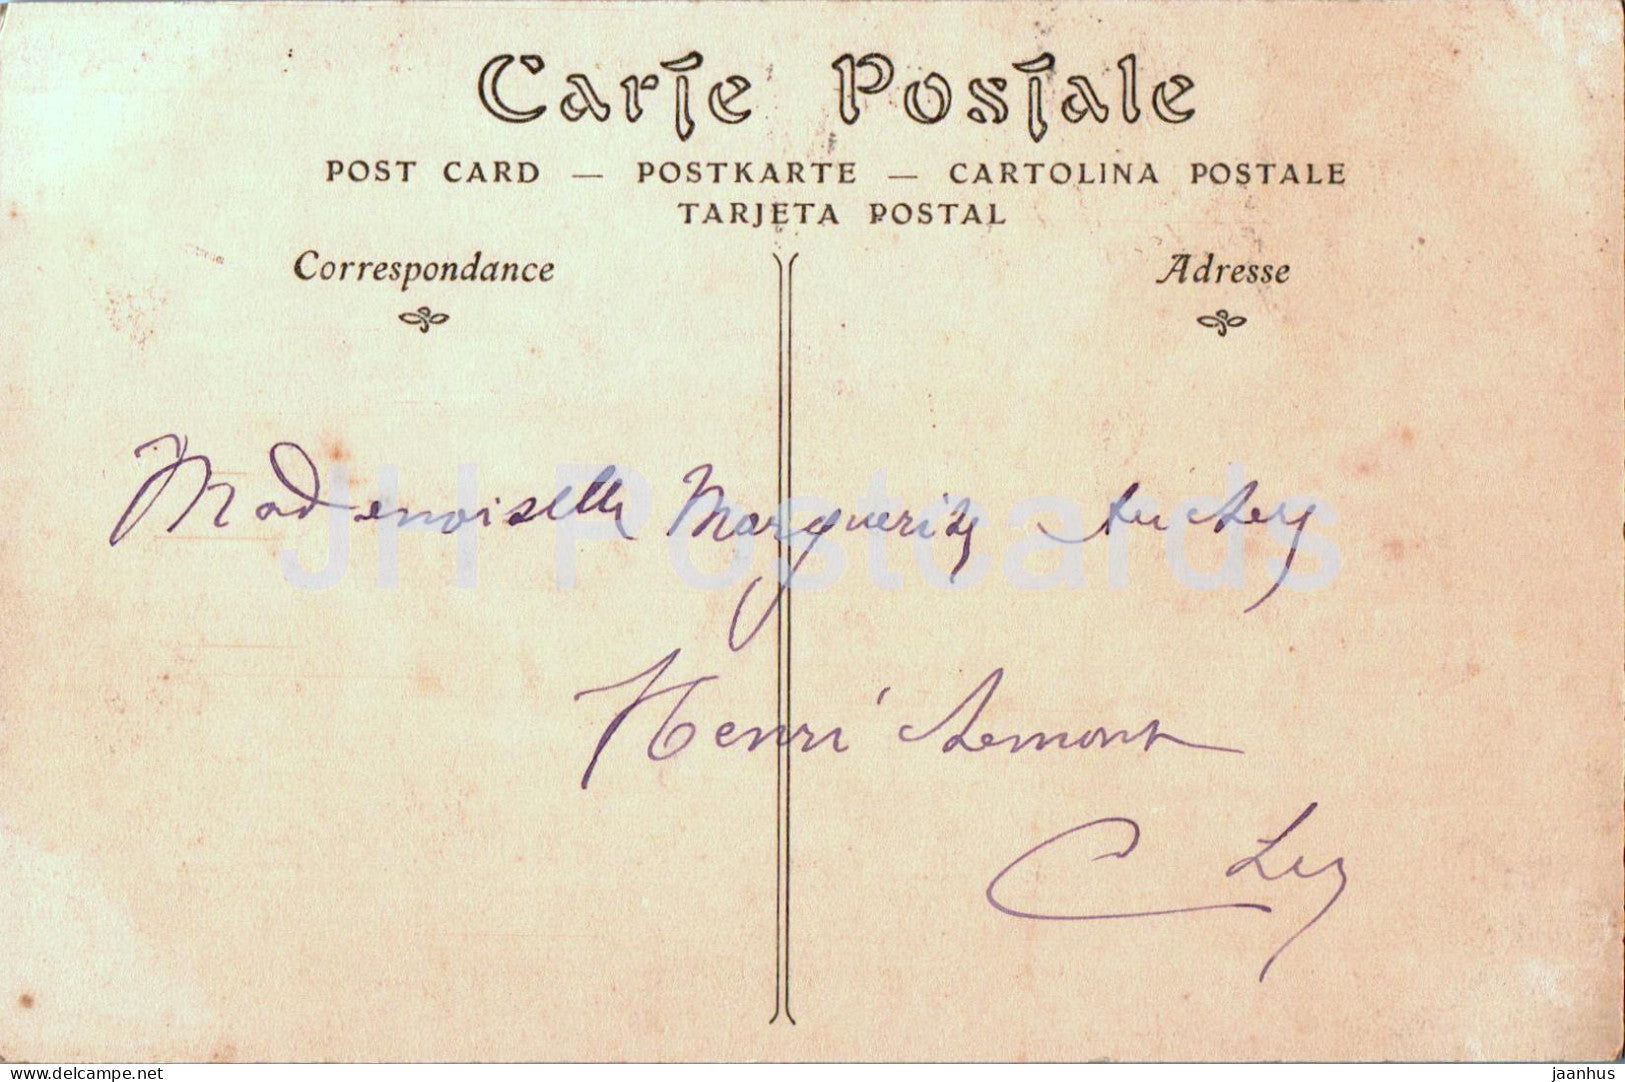 Carte Postale
POST CARD — POSTKARTE — CARTOLINA POSTALE
TARJETA POSTAL
Correspondance
Adresse
Mademoiselle Marguerite
JH Postcards
Henri
www.delcampe.net
jaanhus